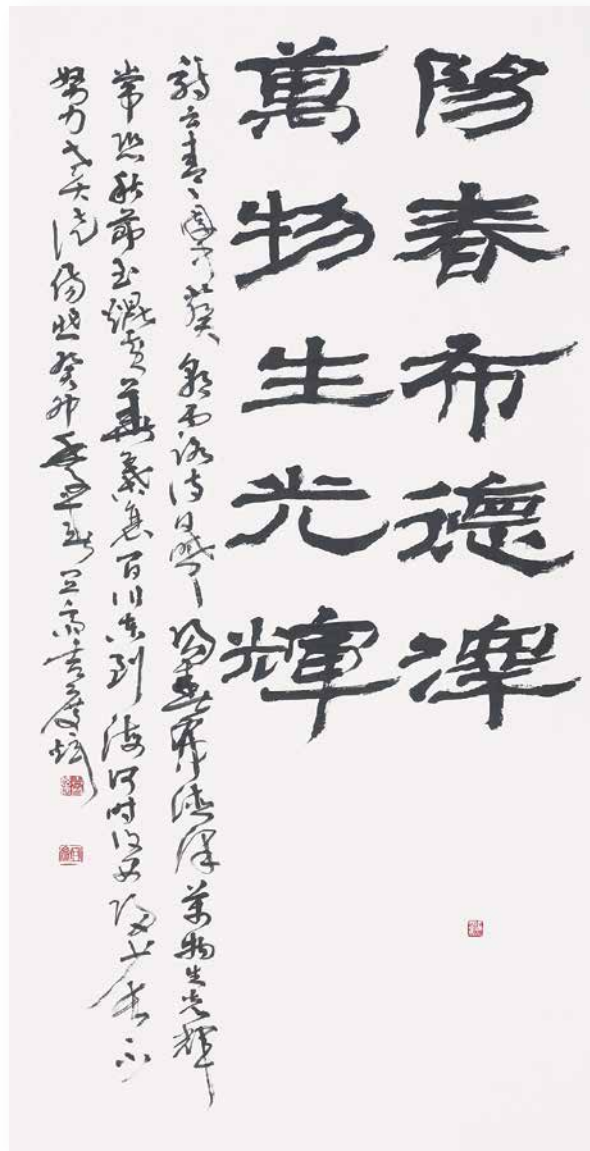 陽春布德澤
萬物生光輝
云青青園中葵朝露待日晞陽春布德澤萬物生光輝
常恐秋節至焜黃華葉衰百川東到海何時復西歸少壯不
努力老大徒傷悲癸卯年